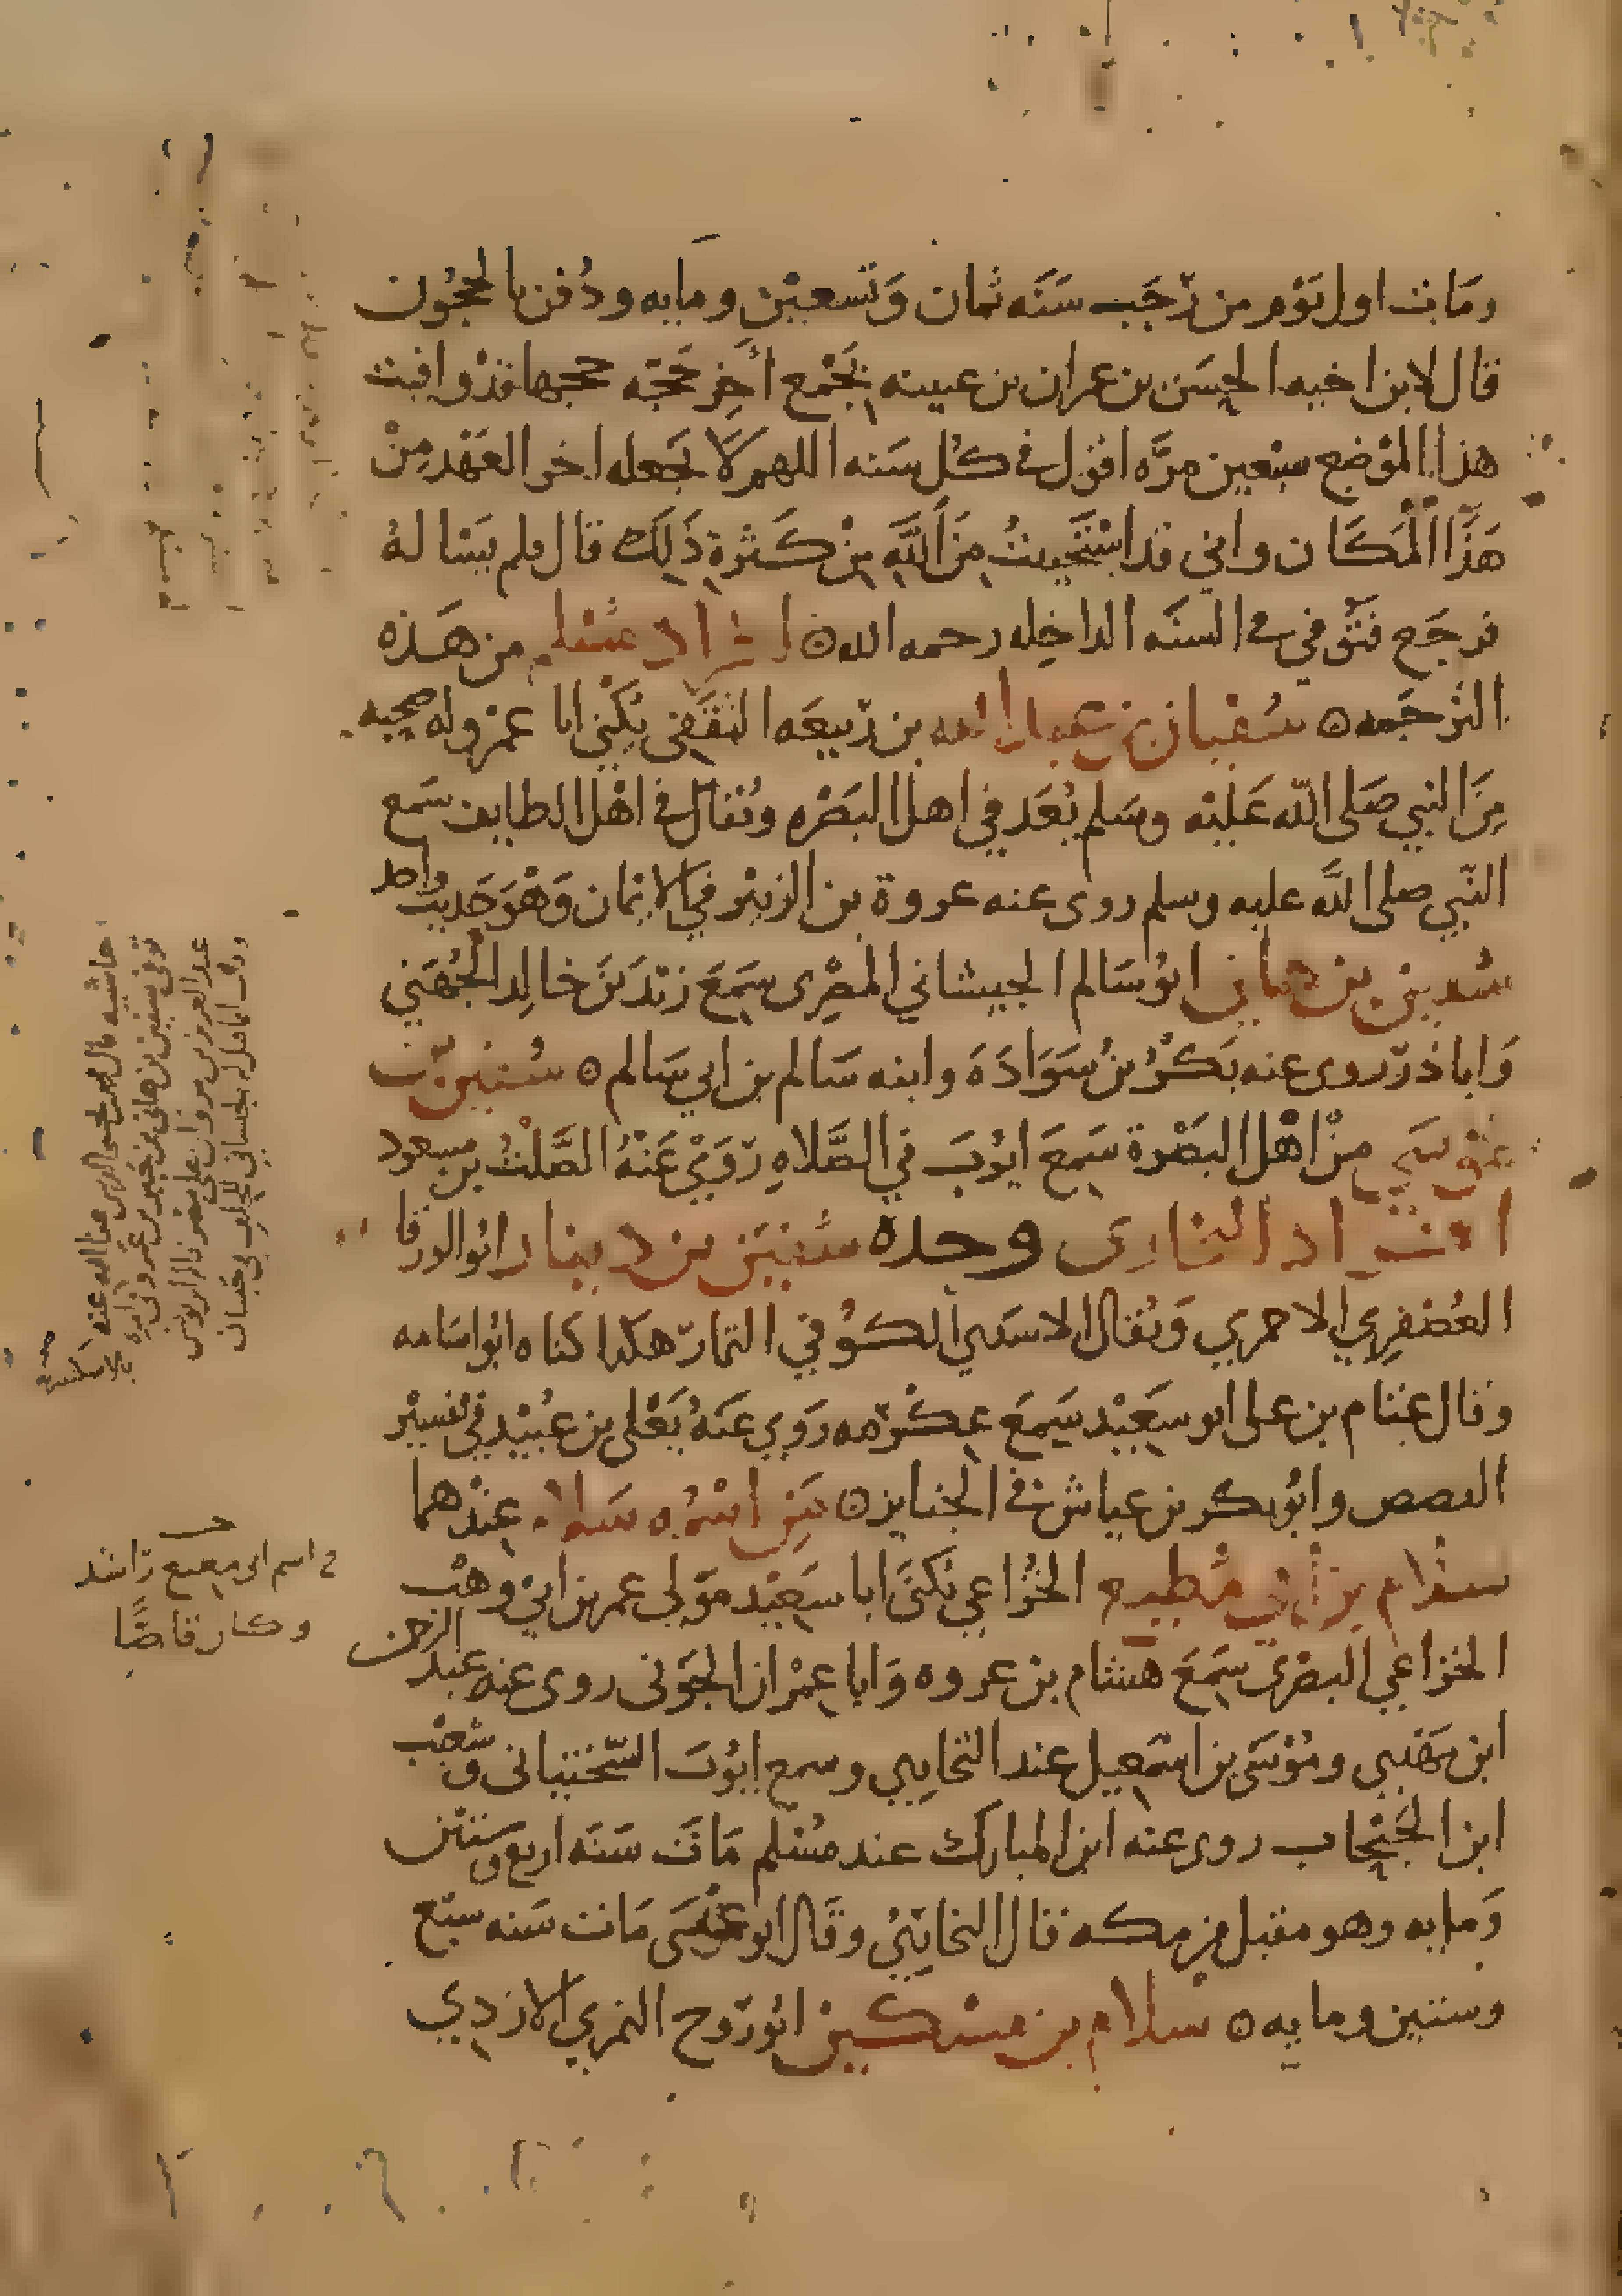 ومات اول يوم من رجب سنه ثمان وتسعين ومايه ودفن بالحجون
قال لابن اخيه الحسن بن عمران بن عيينه بجمع اخر حجه حجها قد وافيت
هذا الموضع سبعين مره اقول في كل سنه اللهم لا تجعله اخر العهد من
هذا المكان واني قد استحييت من الله من كثرة ذلك قال فلم يساله
فرجع فتوفي في السنه الداخله رحمه الله ه افراد مسلم من هذه
الترجمه ه سفيان بن عبد الله بن ربيعه الثقفي يكنى ابا عمرو له صحبه
من النبي صلى الله عليه وسلم يعد في اهل البصره ويقال في اهل الطايف سمع
النبي صلى الله عليه وسلم روى عنه عروة بن الزبير في الايمان وهو حديث واحد
سفين بن هاني ابو سالم الجيشاني المصري سمع زيد بن خالد الجهني
وابا ذر روى عنه بكر بن سوادة وابنه سالم بن ابي سالم ه سفين بن
موسى من اهل البصرة سمع ايوب في الصلاه روى عنه الصلت بن مسعود
افراد البخاري وحده سفين بن دينار ابو الورقا
العصفري الاحمري ويقال الاسدي الكوفي التمار هكذا كناه ابو اسامه
وقال عثام بن على ابو سعيد سمع عكرمه روى عنه يعلى بن عبيد في تفسير
القصص وابو بكر بن عياش في الجنايز ه من اسمه سلام عندهما
سلام بن ابي مطيع الخزاعي يكنى ابا سعيد مولى عمر بن ابي وهب
الخزاعي البصري سمع هشام بن عروه وابا عمران الجوني روى عنه عبد الرحمن
ابن مهدي وموسى بن اسمعيل عند البخاري وسمع ايوب السختياني وشعيب
ابن الحبحاب روى عنه ابن المبارك عند مسلم مات سنه اربع وستين
ومايه وهو مقبل من مكه قال البخاري وقال ابو عيسى مات سنه سبع
وستين ومايه ه سلام بن مسكين ابو روح النمري الازدي
حاشيه قال
توفى سفين بن هاني بن جبر بن عمرو في امره
عبد العزيز بن مروان على مصر
اسم ابي مطيع راشد
وكان قاضيا